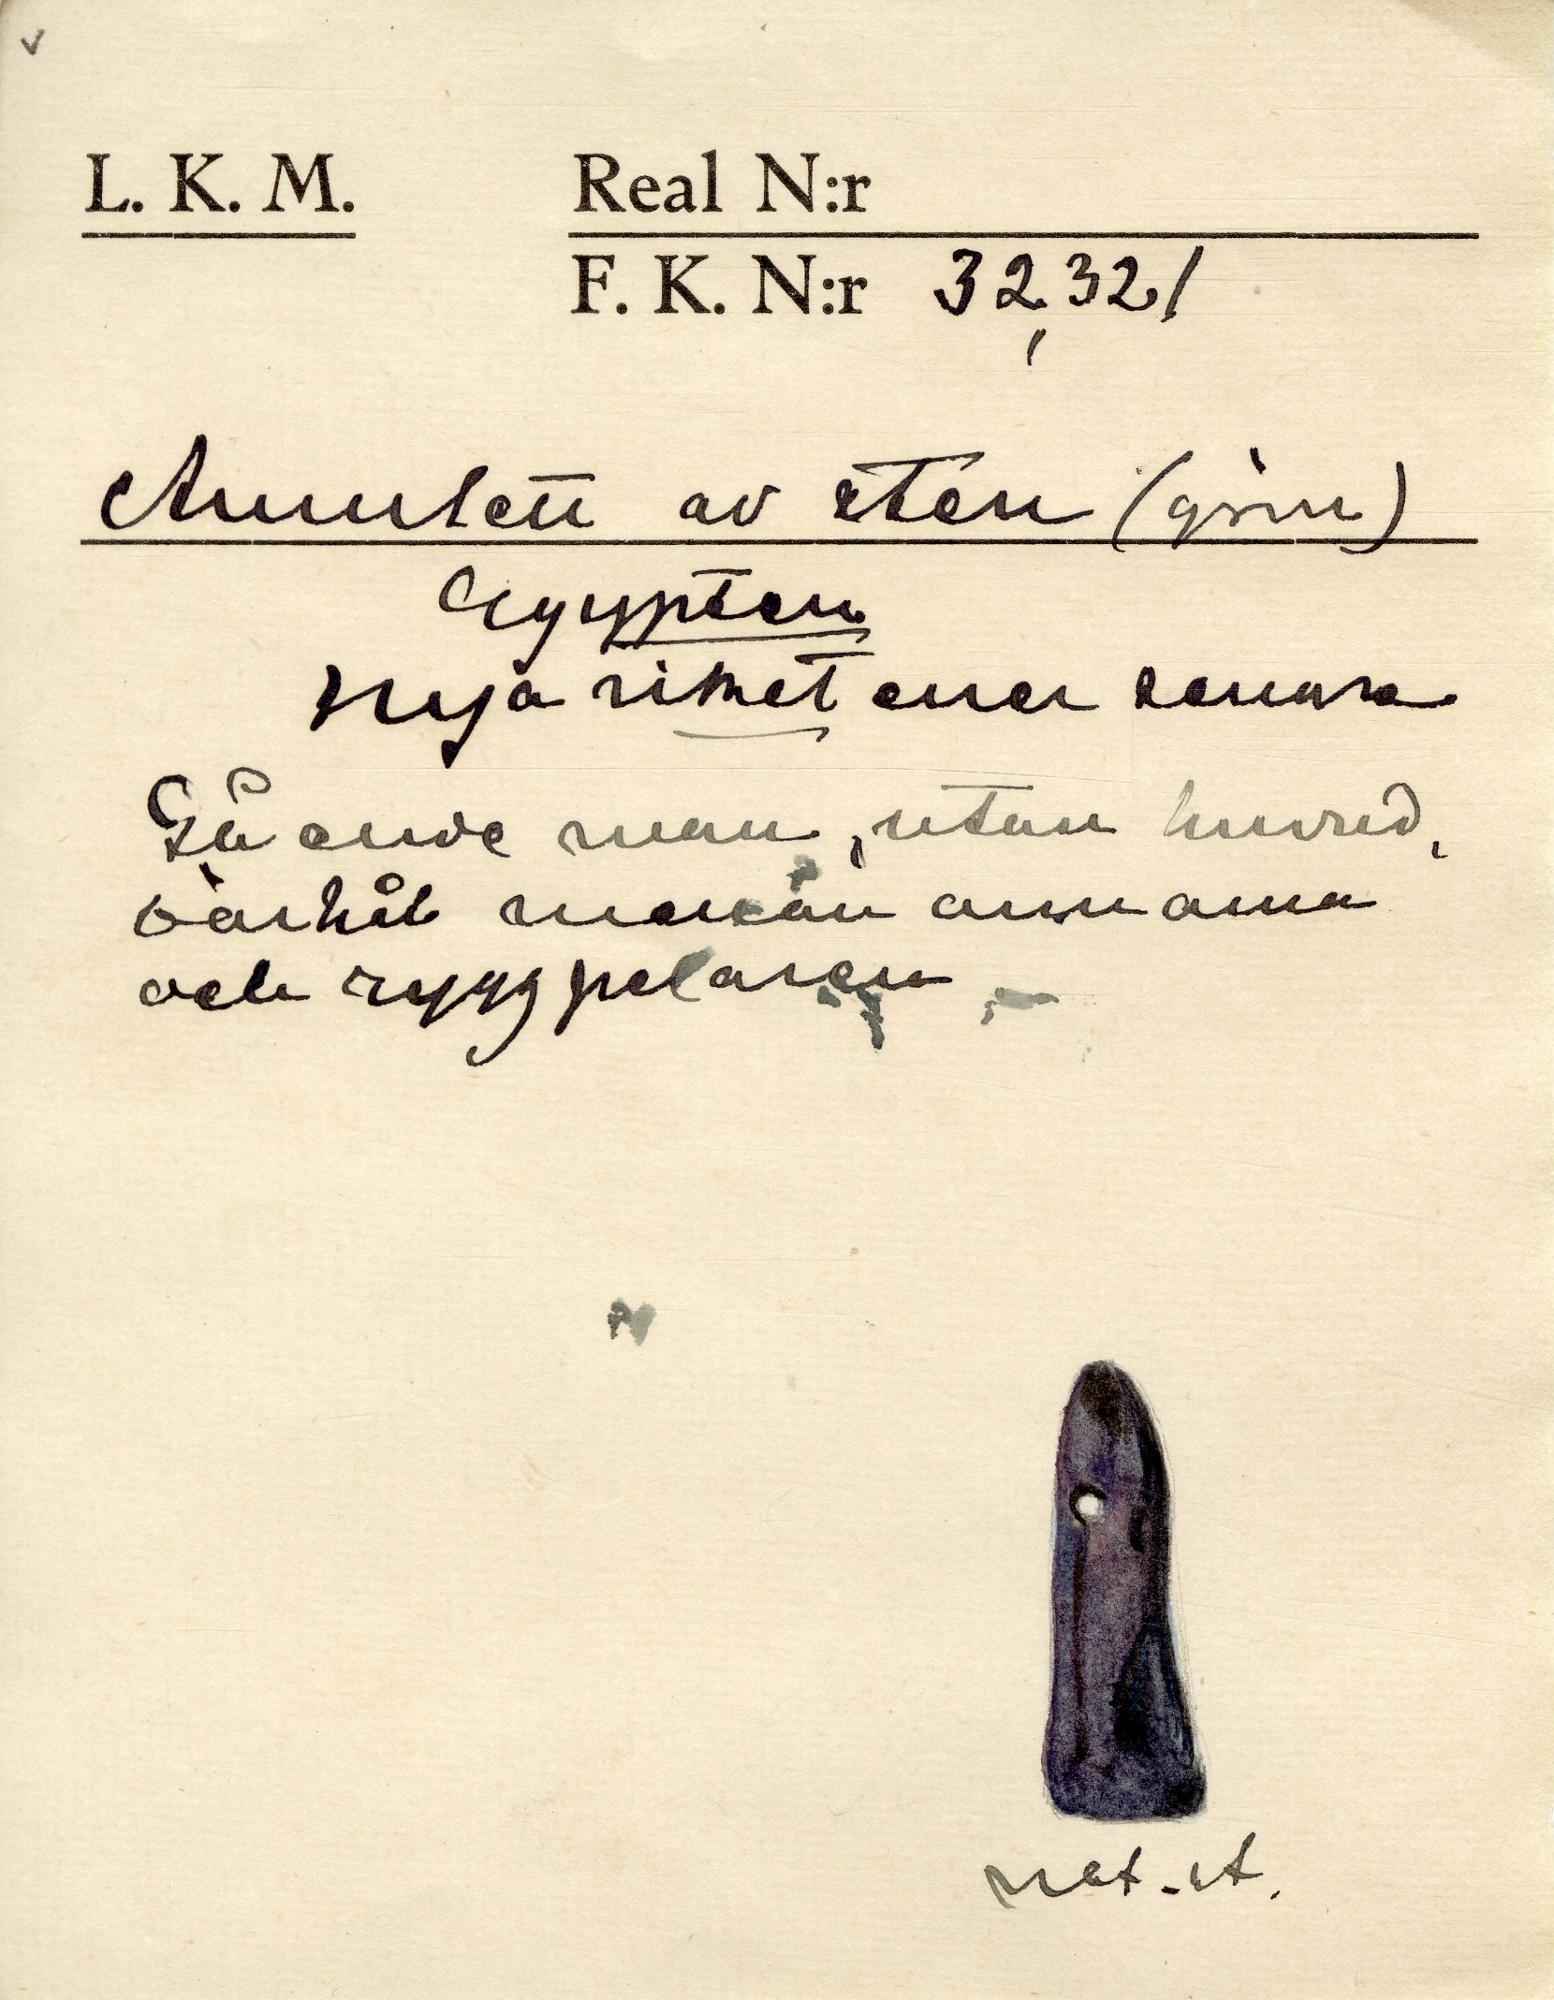 L. K. M.
Real N:r
F. K. N:r 32,321
Amulett av sten (grön)
Egypten
Nya riket eller senare
Gående man, utan huvud,
bärhål mellan armarna
och ryggpelaren
nat. st.